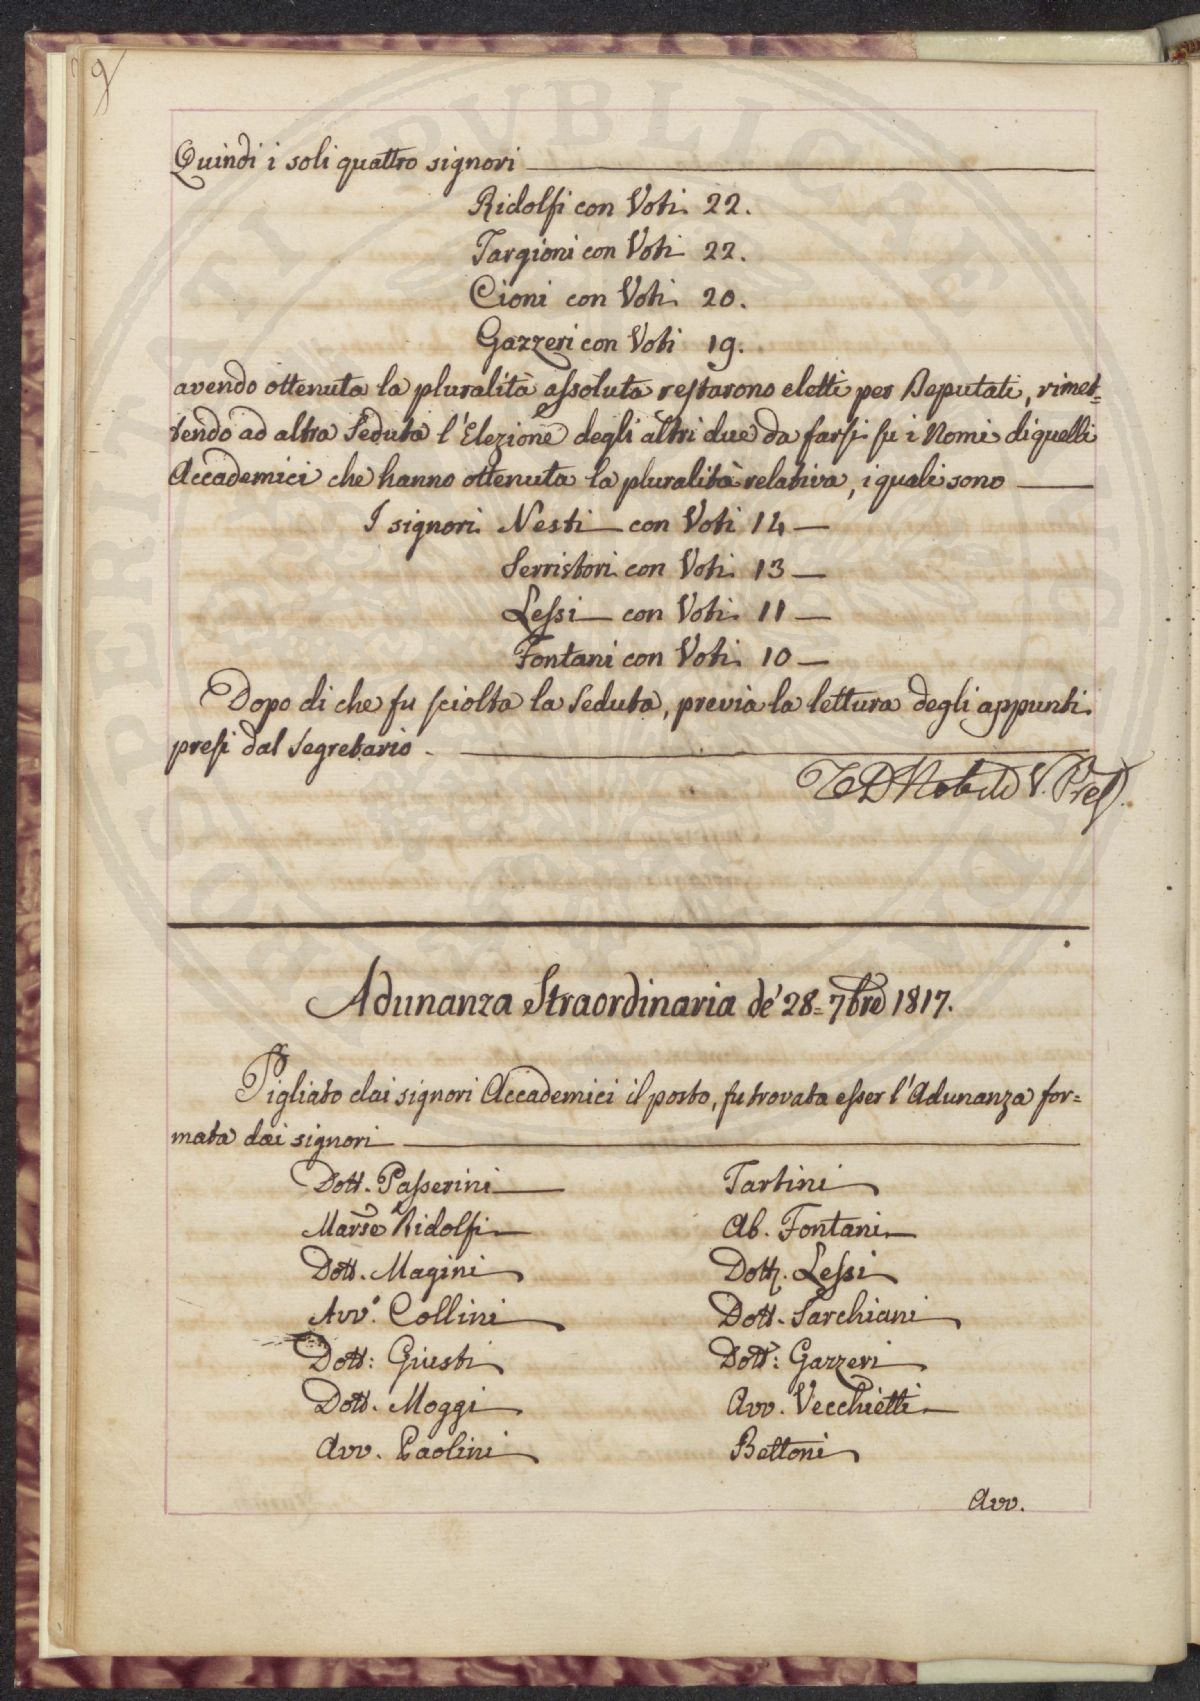 Quindi i soli quattro signori
Ridolfi con Voti 22.
Targioni con Voti 22.
Cioni con Voti 20.
Gazzeri con Voti 19.
avendo ottenuta la pluralità assoluta restarono eletti per Deputati, rimet=
tendo ad altra Seduta l'Elezione degli altri due da farsi su i Nomi di quelli
Accademici che hanno ottenuta la pluralità relativa, i quali sono
I signori Nesti con Voti 14
Serristori con Voti 13
Lessi con Voti 11
Fontani con Voti 10
Dopo di che fu sciolta la Seduta, previa la lettura degli appunti
presi dal Segretario.
V. Pres.
Adunanza Straordinaria de' 28= 7bre 1817.
Pigliato dai signori Accademici il posto, fu trovata esser l'Adunanza for=
mata dai signori
Dott. Passerini Tartini
Marse Ridolfi Ab. Fontani
Dott. Magini Dott. Lessi
Avvo. Collini Dott. Sarchiani
Dott: Giusti Dott: Gazzeri
Dott. Moggi Avv. Vecchietti
Avv. Paolini Bettoni
Avv.